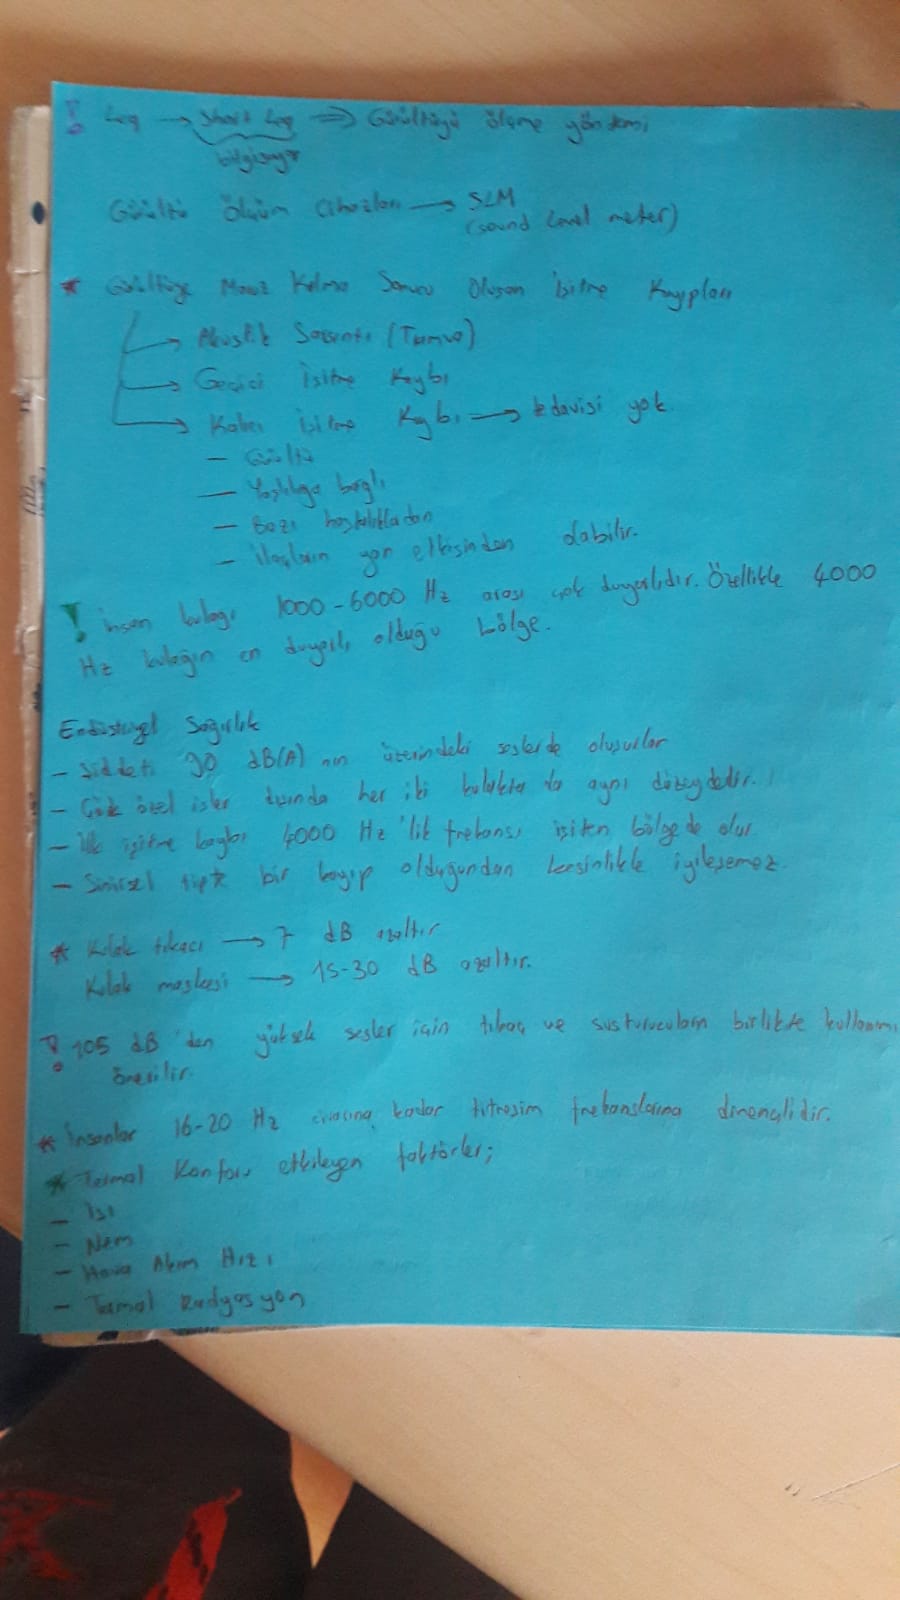 ! Leq → Short Leq ⇒ Gürültüyü ölçme yöntemi
bilgisayar
Gürültü Ölçüm Cihazları → SLM
(sound level meter)
* Gürültüye Maruz Kalma Sonucu Oluşan İşitme Kayıpları
→ Akustik Sarsıntı (Travma)
→ Geçici İşitme Kaybı
→ Kalıcı İşitme Kaybı → tedavisi yok
— Gürültü
— Yaşlılığa bağlı
— Bazı hastalıklardan
— İlaçların yan etkisinden olabilir.
! İnsan kulağı 1000-6000 Hz arası çok duyarlıdır. Özellikle 4000
Hz kulağın en duyarlı olduğu bölge.
Endüstriyel Sağırlık
— Şiddeti 90 dB(A) nın üzerindeki seslerde oluşurlar
— Çok özel işler dışında her iki kulakta da aynı düzeydedir.
— İlk işitme kaybı 4000 Hz'lik frekansı işiten bölgede olur
— Sinirsel tipte bir kayıp olduğundan kesinlikle iyileşemez.
* Kulak tıkacı → 7 dB azaltır
Kulak maskesi → 15-30 dB azaltır.
! 105 dB'den yüksek sesler için tıkaç ve susturucuların birlikte kullanımı
önerilir.
* İnsanlar 16-20 Hz civarına kadar titreşim frekanslarına dirençlidir.
* Termal Konforu etkileyen faktörler;
— Isı
— Nem
— Hava Akım Hızı
— Termal Radyasyon